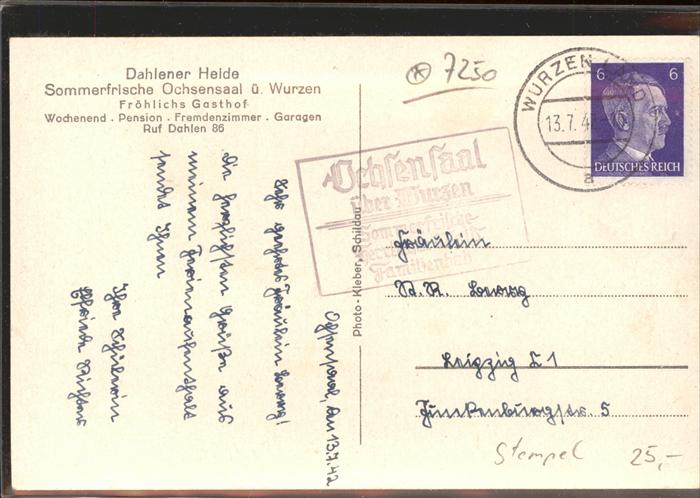 Dahlener Heide
Sommerfrische Ochsensaal ü. Wurzen
Fröhlichs Gasthof
Wochenend . Pension . Fremdenzimmer . Garagen
Ruf Dahlen 86
7250
WURZEN LAND
13.7.42
a
6 6
DEUTSCHES REICH
Ochsensaal
über Wurzen
Sommerfrische
Familienbad
Photo-Kleber, Schildau
Ochsensaal, den 13.7.42
Sehr geehrtes Fräulein
Die herzlichsten Grüße aus
meinem Ferienaufenthalt
sendet Ihnen
Ihre Schülerin
Elfriede Richter
Fräulein
Leipzig C 1
Funkenburgstr. 5
Stempel 25,-